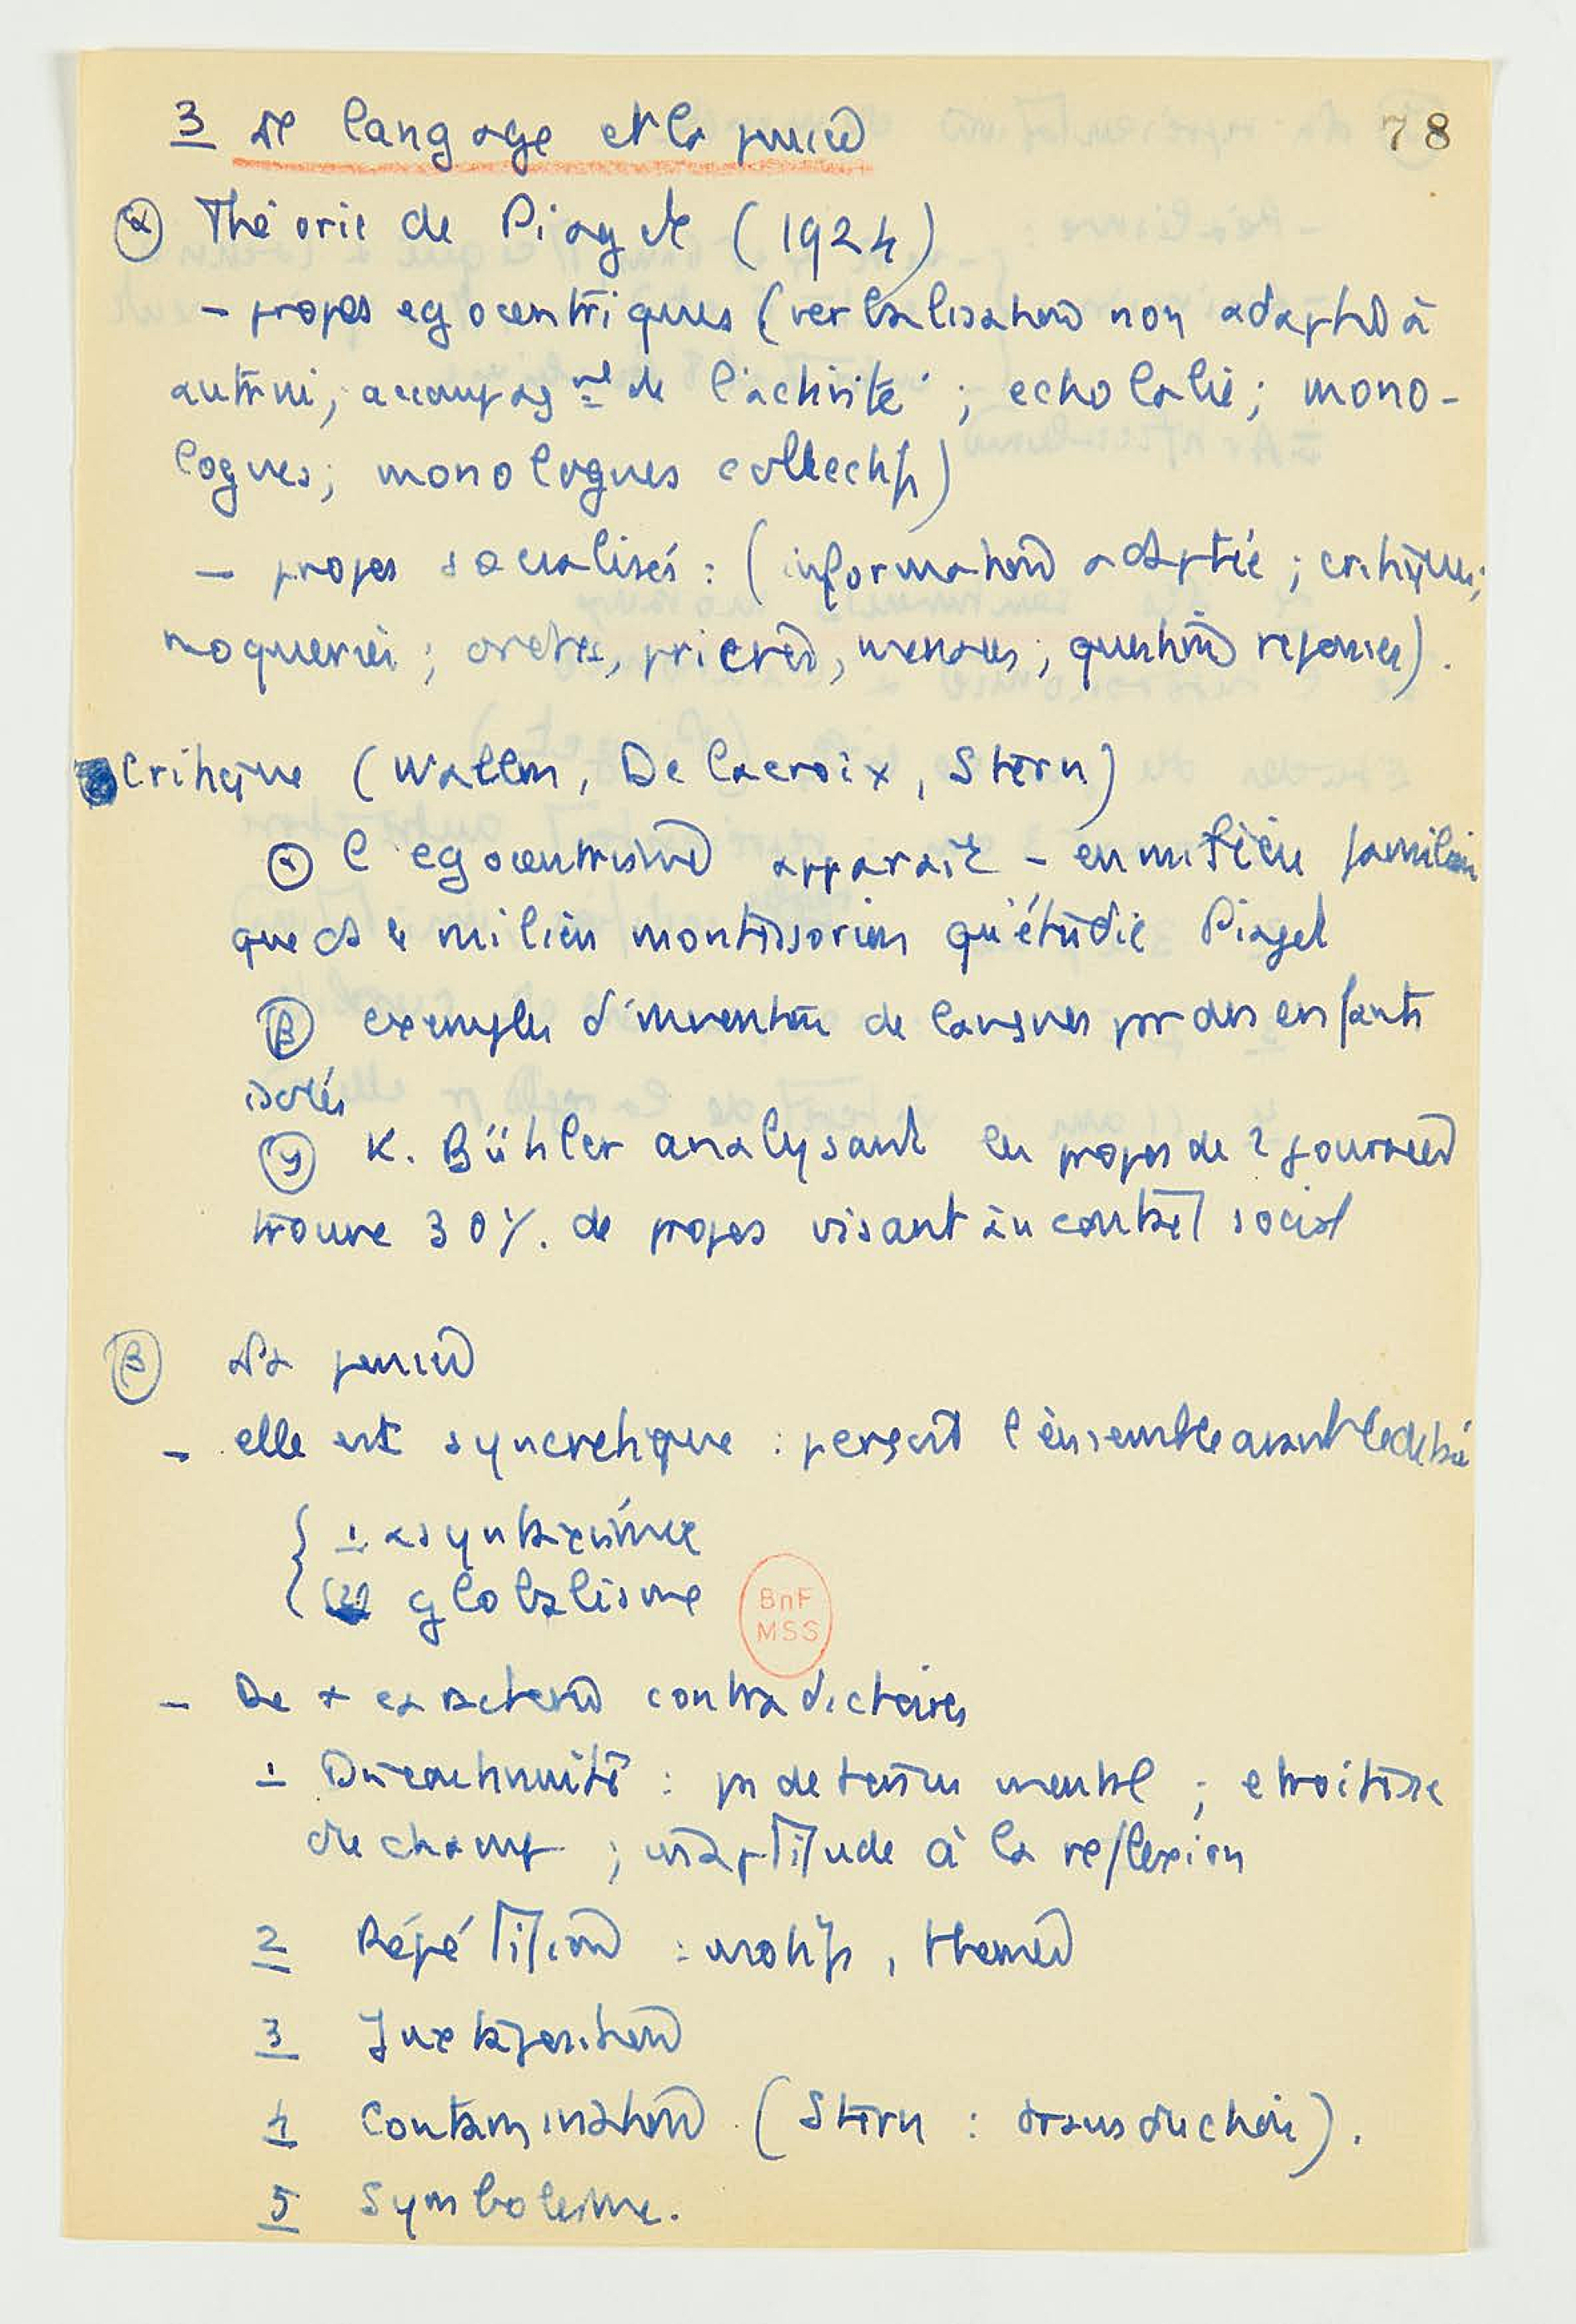 3 Le langage et la pensée
78
α Théorie de Piaget (1924)
- propos egocentriques (verbalisation non adaptée à
autrui, accompagnt de l'activité ; echolalie ; mono-
logues ; monologues collectifs)
- propos socialisés : (information adaptée ; critiques ;
moqueries ; ordres, prières, menaces ; questions reponses).
Critique (Wallon, Delacroix, Stern)
α l'egocentrisme apparait - en milieu familier
que ds le milieu montessorien qu'étudie Piaget
β exemples d'invention de langues par des enfants
isolés
γ K. Bühler analysant les propos de 2 journées
trouve 30%. de propos visant au contact social
β La pensée
- elle est syncretique : perçoit l'ensemble avant le détail
1 asyntaxisme
2 globalisme
BnF
MSS
- De + caractères contradictoires
1 Discontinuité : ps de tenue mental ; etroitesse
du champ ; inaptitude à la reflexion
2 Répétition : motifs, themes
3 Juxtaposition
4 Contamination (Stern : transduction).
5 Symbolisme.